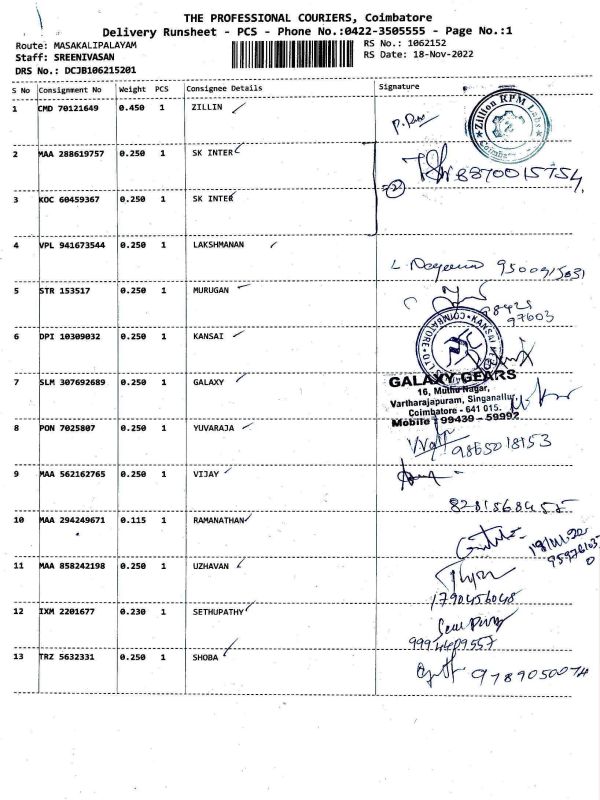 THE PROFESSIONAL COURIERS, Coimbatore
Delivery Runsheet - PCS - Phone No.:0422-3505555 - Page No.:1
Route: MASAKALIPALAYAM RS No.: 1062152
Staff: SREENIVASAN RS Date: 18-Nov-2022
DRS No.: DCJB106215201
S No Consignment No Weight PCS Consignee Details Signature
1 CMD 70121649 0.450 1 ZILLIN
Zillion RPM Labs
2 MAA 288619757 0.250 1 SK INTER
8870015754
3 KOC 60459367 0.250 1 SK INTER
4 VPL 941673544 0.250 1 LAKSHMANAN
5 STR 153517 0.250 1 MURUGAN
98425
97603
6 DPI 10309032 0.250 1 KANSAI
COIMBATORE KANSAI
7 SLM 307692689 0.250 1 GALAXY
GALAXY GEARS
16, Muthu Nagar,
Vartharajapuram, Singanallur,
Coimbatore - 641 015.
Mobile : 99439 - 59992
8 PON 7025807 0.250 1 YUVARAJA
9865018153
9 MAA 562162765 0.250 1 VIJAY
10 MAA 294249671 0.115 1 RAMANATHAN
11 MAA 858242198 0.250 1 UZHAVAN
1790456048
12 IXM 2201677 0.230 1 SETHUPATHY
9994409557
13 TRZ 5632331 0.250 1 SHOBA
9789050074